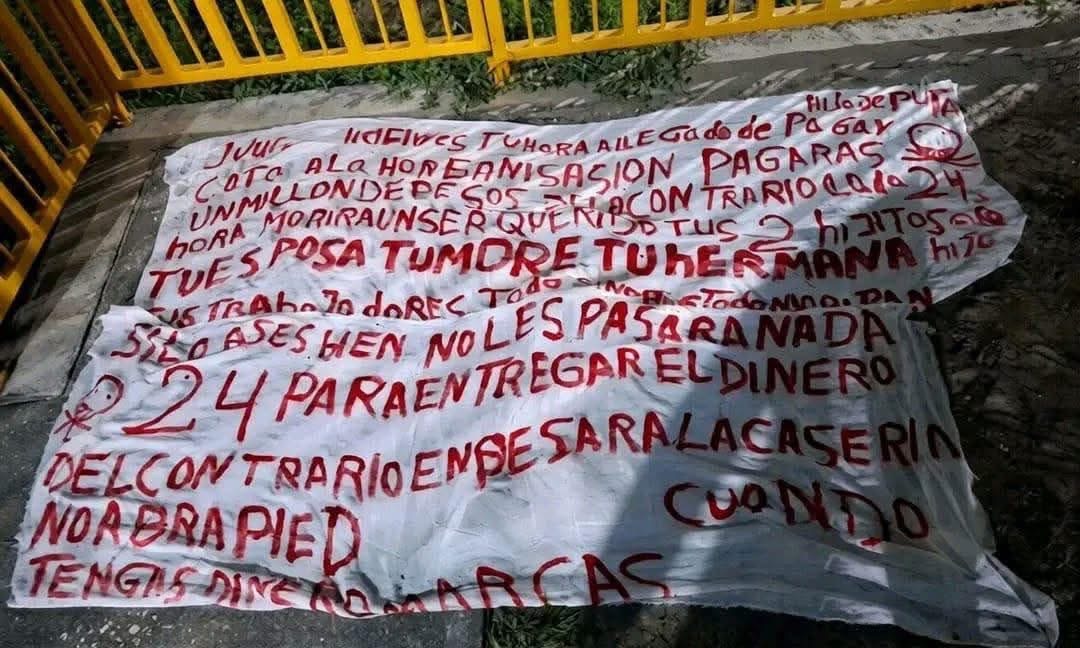 HiJo DE PUTA
TU HORA A LLEGado de PaGar
COTA ALa HOREANISASION PAGARAS
UN MILLON DE PESOS CONTRARIO CaDa 24
hORA MORIRA UN SER QUERIDO TUS 2 hiJITOS
TU ESPOSA TU MDRE TU hERMANA hiJo
TRabaJadORES Todo
SI Lo ASES BIEN NO LES PASARA NADA
24 PARA ENTREGAR EL DINERO
DEL CONTRARIO ENPESARA LA CASERIA
NO ABRA PIED CUANDO
TENGAS DINERO MARCAS